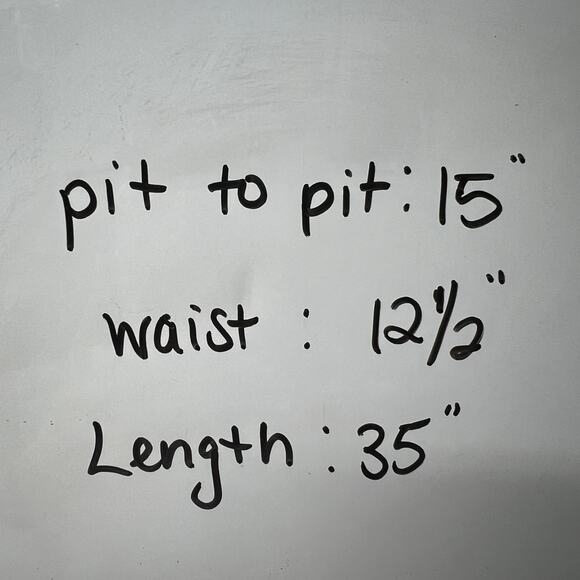 pit to pit: 15"
waist : 12 1/2"
Length : 35"